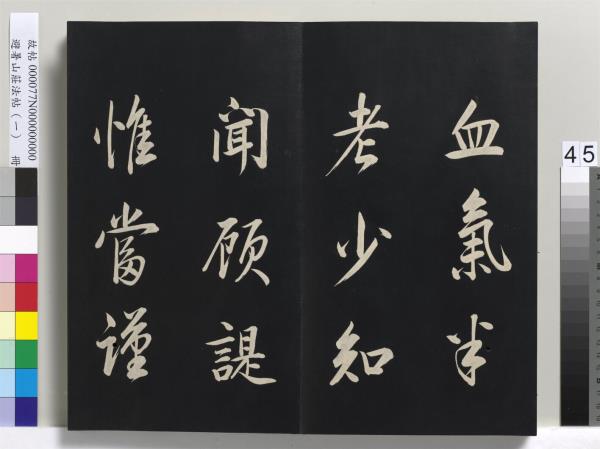 血氣半
老少知
聞顧諟
惟當謹
故帖 000077N000000000
避暑山莊法帖（一） 冊
45